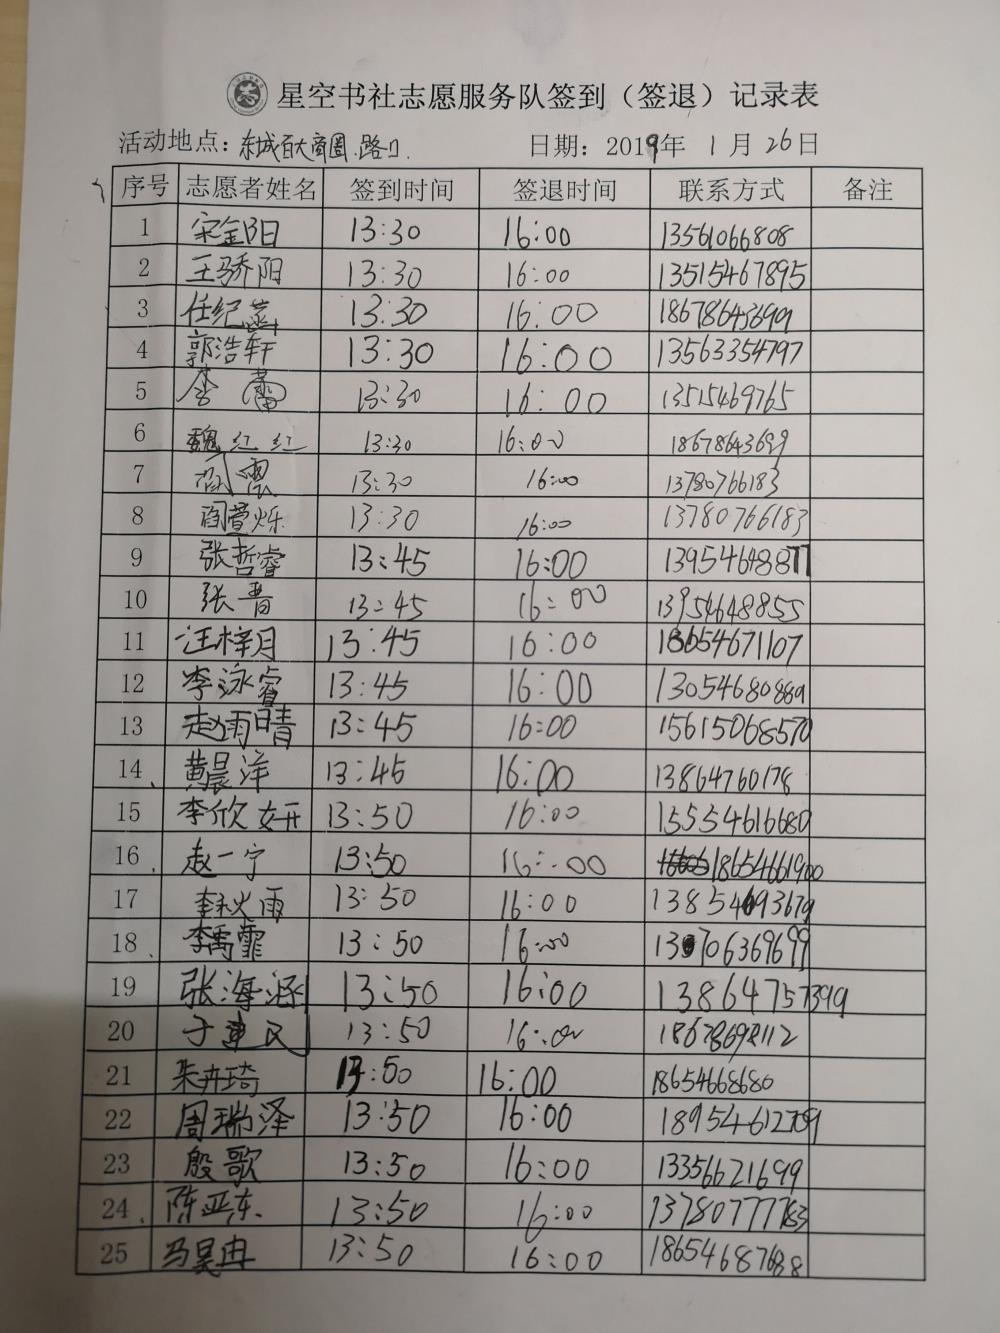 星空书社志愿服务队签到（签退）记录表
活动地点：东城百大商圈.路口 日期：2019年1月26日
序号 志愿者姓名 签到时间 签退时间 联系方式 备注
1 宋金阳 13:30 16:00 13561066808
2 王骄阳 13:30 16:00 13515467895
3 任纪菡 13:30 16:00 18678643699
4 郭浩轩 13:30 16:00 13563354797
5 李蕾 13:30 16:00 13515469765
6 魏红红 13:30 16:00 18678643699
7 13:30 16:00 13780766183
8 阎萱烁 13:30 16:00 13780766183
9 张哲睿 13:45 16:00 13954648877
10 张晋 13:45 16:00 13954648855
11 汪梓月 13:45 16:00 18654671107
12 李泳睿 13:45 16:00 13054680889
13 赵雨晴 13:45 16:00 15615068570
14 黄晨洋 13:45 16:00 13864760178
15 李欣妍 13:50 16:00 15554616680
16 赵一宁 13:50 16:00 18654661900
17 李秋雨 13:50 16:00 13854693679
18 李禹霏 13:50 16:00 13706369699
19 张海涵 13:50 16:00 13864757399
20 于建民 13:50 16:00 18678698112
21 朱卉琦 13:50 16:00 18654668680
22 周瑞泽 13:50 16:00 18954612709
23 殷歌 13:50 16:00 13356621699
24 陈亚东 13:50 16:00 13780777783
25 马昊冉 13:50 16:00 18654687688